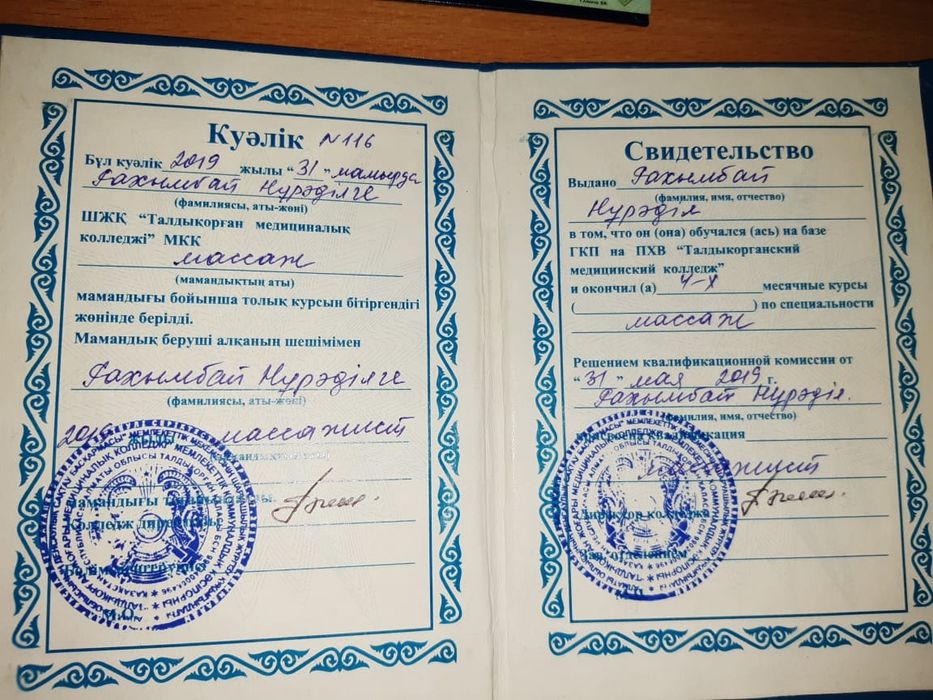 Куәлік N116
Бұл куәлік 2019 жылы “31” мамырда
Рахымбай Нұрәділге
(фамилиясы, аты-жөні)
ШЖҚ “Талдықорған медициналық
колледжі” МКК
массаж
(мамандықтың аты)
мамандығы бойынша толық курсын бітіргендігі
жөнінде берілді.
Мамандық беруші алқаның шешімімен
Рахымбай Нұрәділге
(фамилиясы, аты-жөні)
2019 жылы массажист
мамандығы
Колледж директоры
Свидетельство
Выдано Рахымбай
(фамилия, имя, отчество)
Нұрәділ
в том, что он (она) обучался (ась) на базе
ГКП на ПХВ “Талдыкорганский
медицинский колледж”
и окончил (а) 4-х месячные курсы
( ) по специальности
массаж
Решением квалификационной комиссии от
“31” мая 2019 г.
Рахымбай Нұрәділ.
(фамилия, имя, отчество)
присвоена квалификация
массажист
Директор колледжа
Зав. отделением